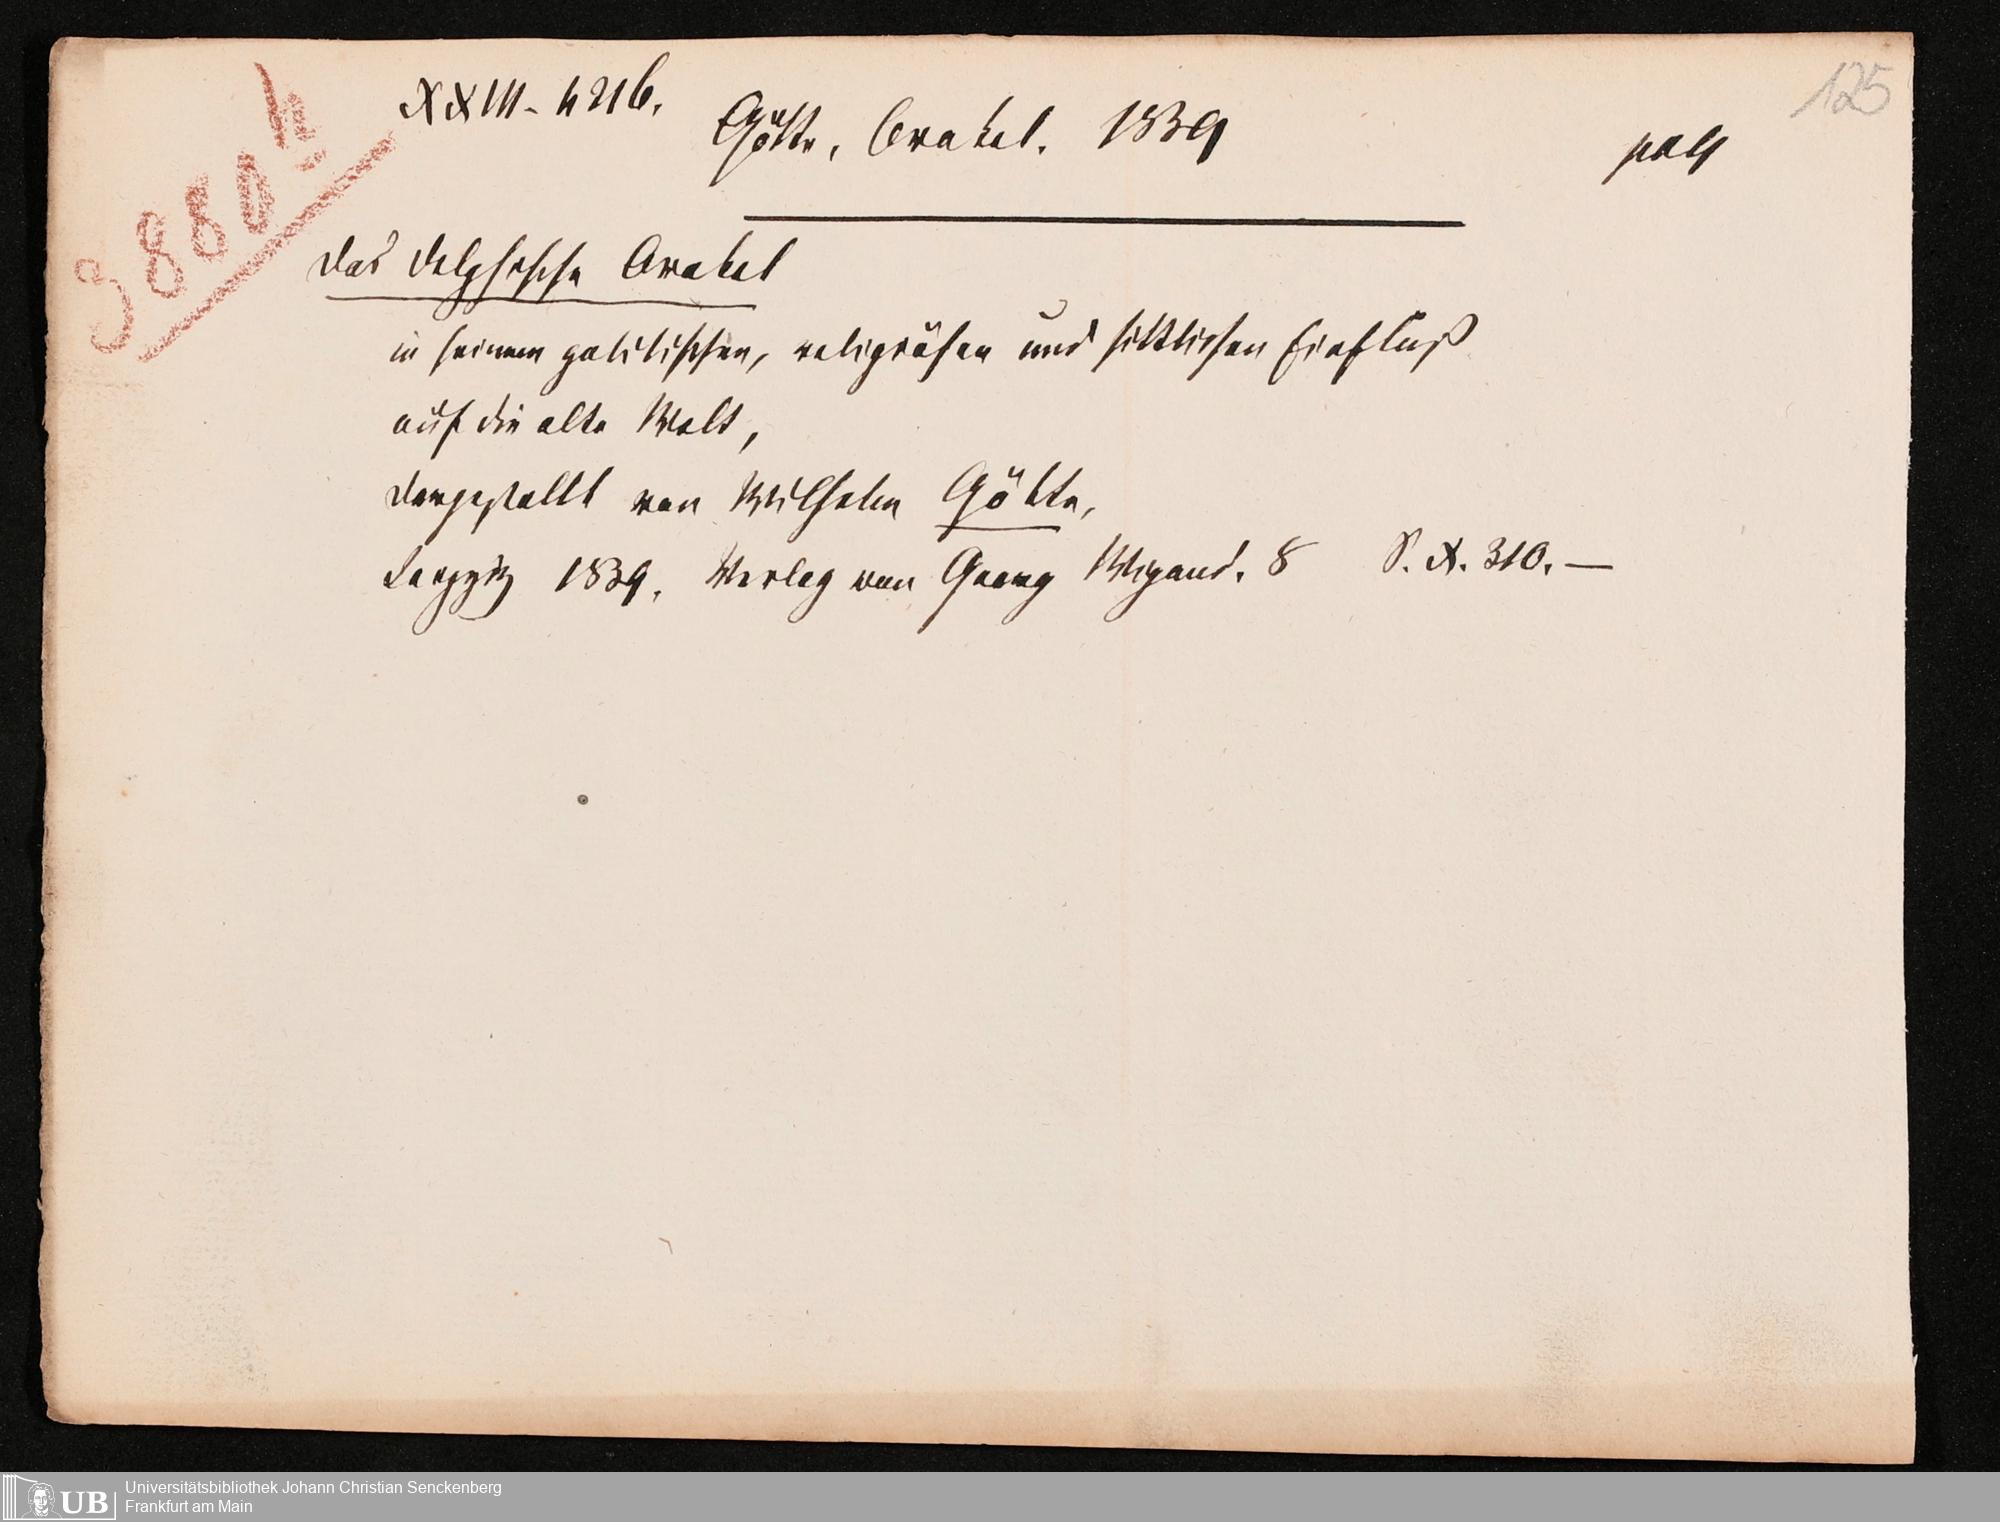 125
XXIII. 421b.
Götte, Orakel. 1839
3880h
Das delphische Orakel
in seinem politischen, religiösen und sittlichen Einfluß
auf die alte Welt,
dargestellt von Wilhelm Götte,
Leipzig 1839. Verlag von Georg Wigand. 8 S. X. 310. —
Universitätsbibliothek Johann Christian Senckenberg
Frankfurt am Main
UB